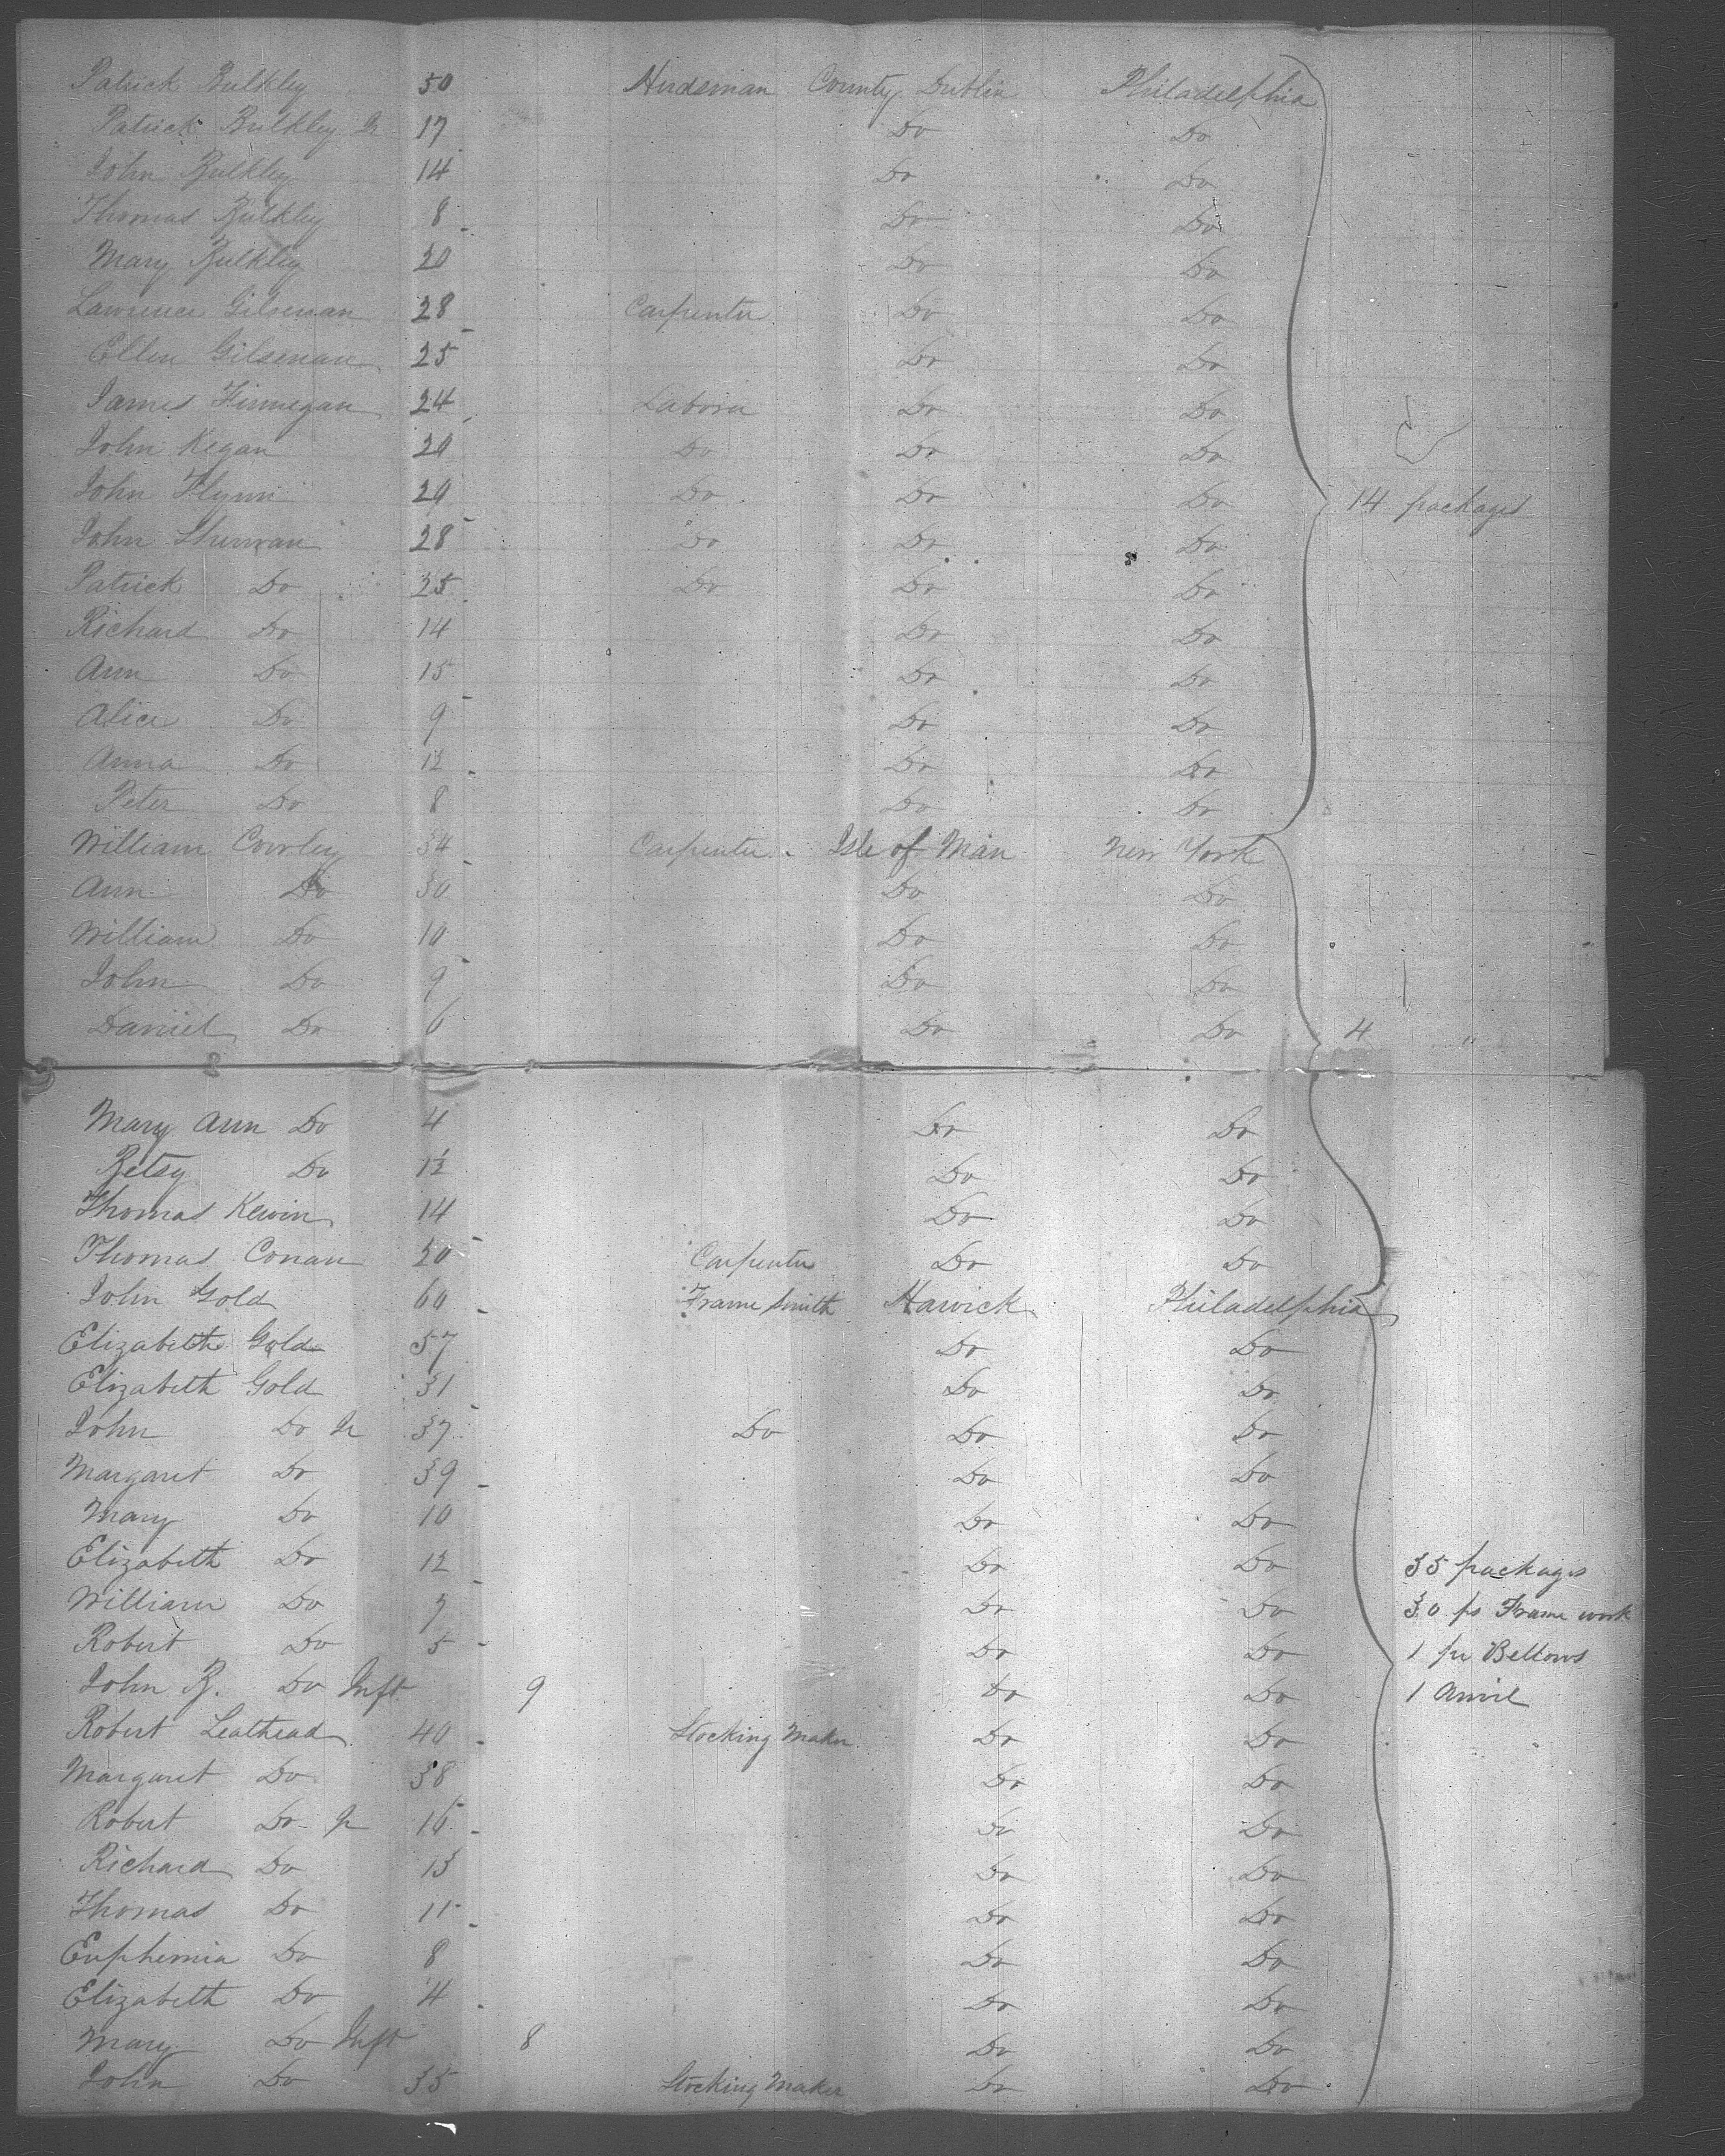 Patrick Bulkley 50 Herdsman County Dublin Philadelphia
Patrick Bulkley Jr 17 Do Do
John Bulkley 14 Do Do
Thomas Bulkley 8 Do Do
Mary Bulkley 20 Do Do
Lawrence Gilsenan 28 Carpenter Do Do
Ellen Gilsenan 25 Do Do
James Finnegan 24 Laborer Do Do
John Kegan 20 Do Do Do
John Flynn 20 Do Do Do 14 packages
John Sherwan 28 Do Do Do
Patrick Do 25 Do Do Do
Richard Do 14 Do Do
Ann Do 15 Do Do
Alice Do 9 Do Do
Anna Do 12 Do Do
Peter Do 8 Do Do
William Cowley 34 Carpenter Isle of Man New York
Ann Do 30 Do Do
William Do 10 Do Do
John Do 9 Do Do
Daniel Do 6 Do Do 4 "
Mary Ann Do 4 Do Do
Betsy Do 1½ Do Do
Thomas Kewin 14 Do Do
Thomas Conan 20 Carpenter Do Do
John Gold 60 Frame Smith Hawick Philadelphia
Elizabeth Gold 57 Do Do
Elizabeth Gold 31 Do Do
John Do Jr 37 Do Do Do
Margaret Do 39 Do Do
Mary Do 10 Do Do
Elizabeth Do 12 Do Do 35 packages
William Do 7 Do Do 30 ps Frame work
Robert Do 5 Do Do 1 pr Bellows
John B. Do Inft 9 Do Do 1 Anvil
Robert Leathead 40 Stocking Maker Do Do
Margaret Do 38 Do Do
Robert Do Jr 16 Do Do
Richard Do 13 Do Do
Thomas Do 11 Do Do
Euphemia Do 8 Do Do
Elizabeth Do 4 Do Do
Mary Do Inft 8 Do Do
John Do 35 Stocking Maker Do Do